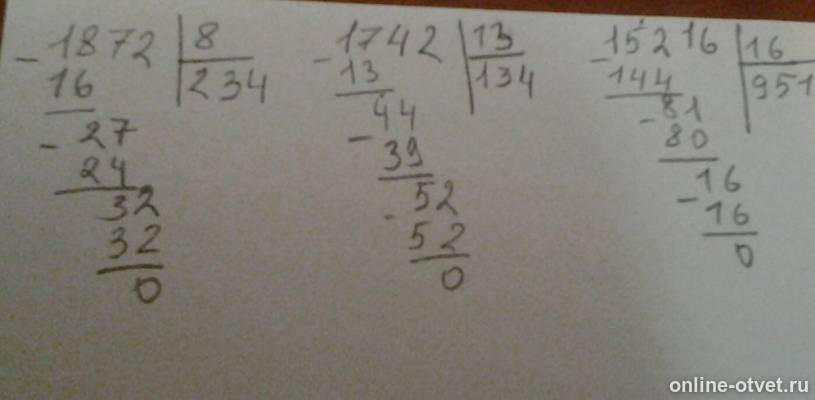 - 1872 | 8
16 | 234
- 27
24
32
32
0
- 1742 | 13
13 | 134
44
- 39
52
- 52
0
- 15216 | 16
144 | 951
- 81
80
16
- 16
0
online-otvet.ru